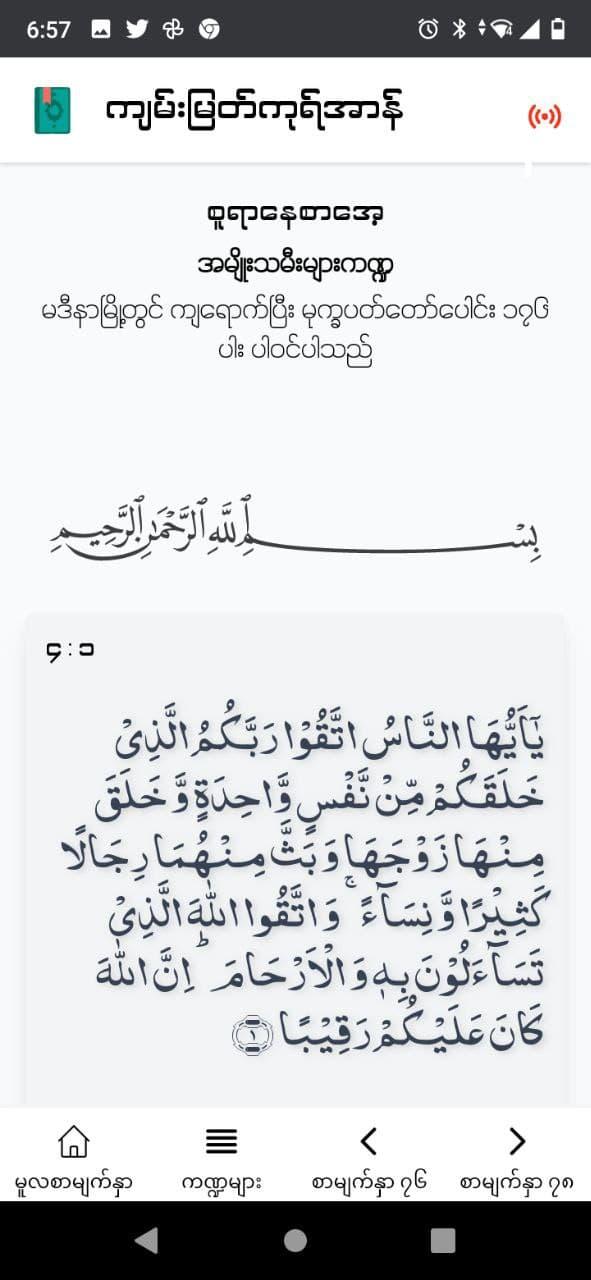 6:57
4
ကျမ်းမြတ်ကုရ်အာန်
စူရာနေစာအေ့
အမျိုးသမီးများကဏ္ဍ
မဒီနာမြို့တွင် ကျရောက်ပြီး မုက္ခပတ်တော်ပေါင်း ၁၇၆
ပါး ပါဝင်ပါသည်
بِسْــــــــــــــمِ ٱللَّهِ ٱلرَّحْمَٰنِ ٱلرَّحِيمِ
၄:၁
يٰۤاَيُّهَا النَّاسُ اتَّقُوْا رَبَّكُمُ الَّذِىْ
خَلَقَكُمْ مِّنْ نَّفْسٍ وَّاحِدَةٍ وَّخَلَقَ
مِنْهَا زَوْجَهَا وَبَثَّ مِنْهُمَا رِجَالًا
كَثِيْرًا وَّنِسَآءً ۚ وَاتَّقُوا اللّٰهَ الَّذِىْ
تَسَآءَلُوْنَ بِهٖ وَالْاَرْحَامَ ؕ اِنَّ اللّٰهَ
كَانَ عَلَيْكُمْ رَقِيْبًا ۝١
မူလစာမျက်နှာ ကဏ္ဍများ စာမျက်နှာ ၇၆ စာမျက်နှာ ၇၈